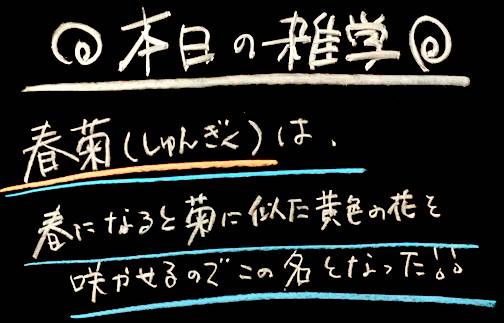 本日の雑学
春菊(しゅんぎく)は、
春になると菊に似た黄色の花を
咲かせるのでこの名となった!!